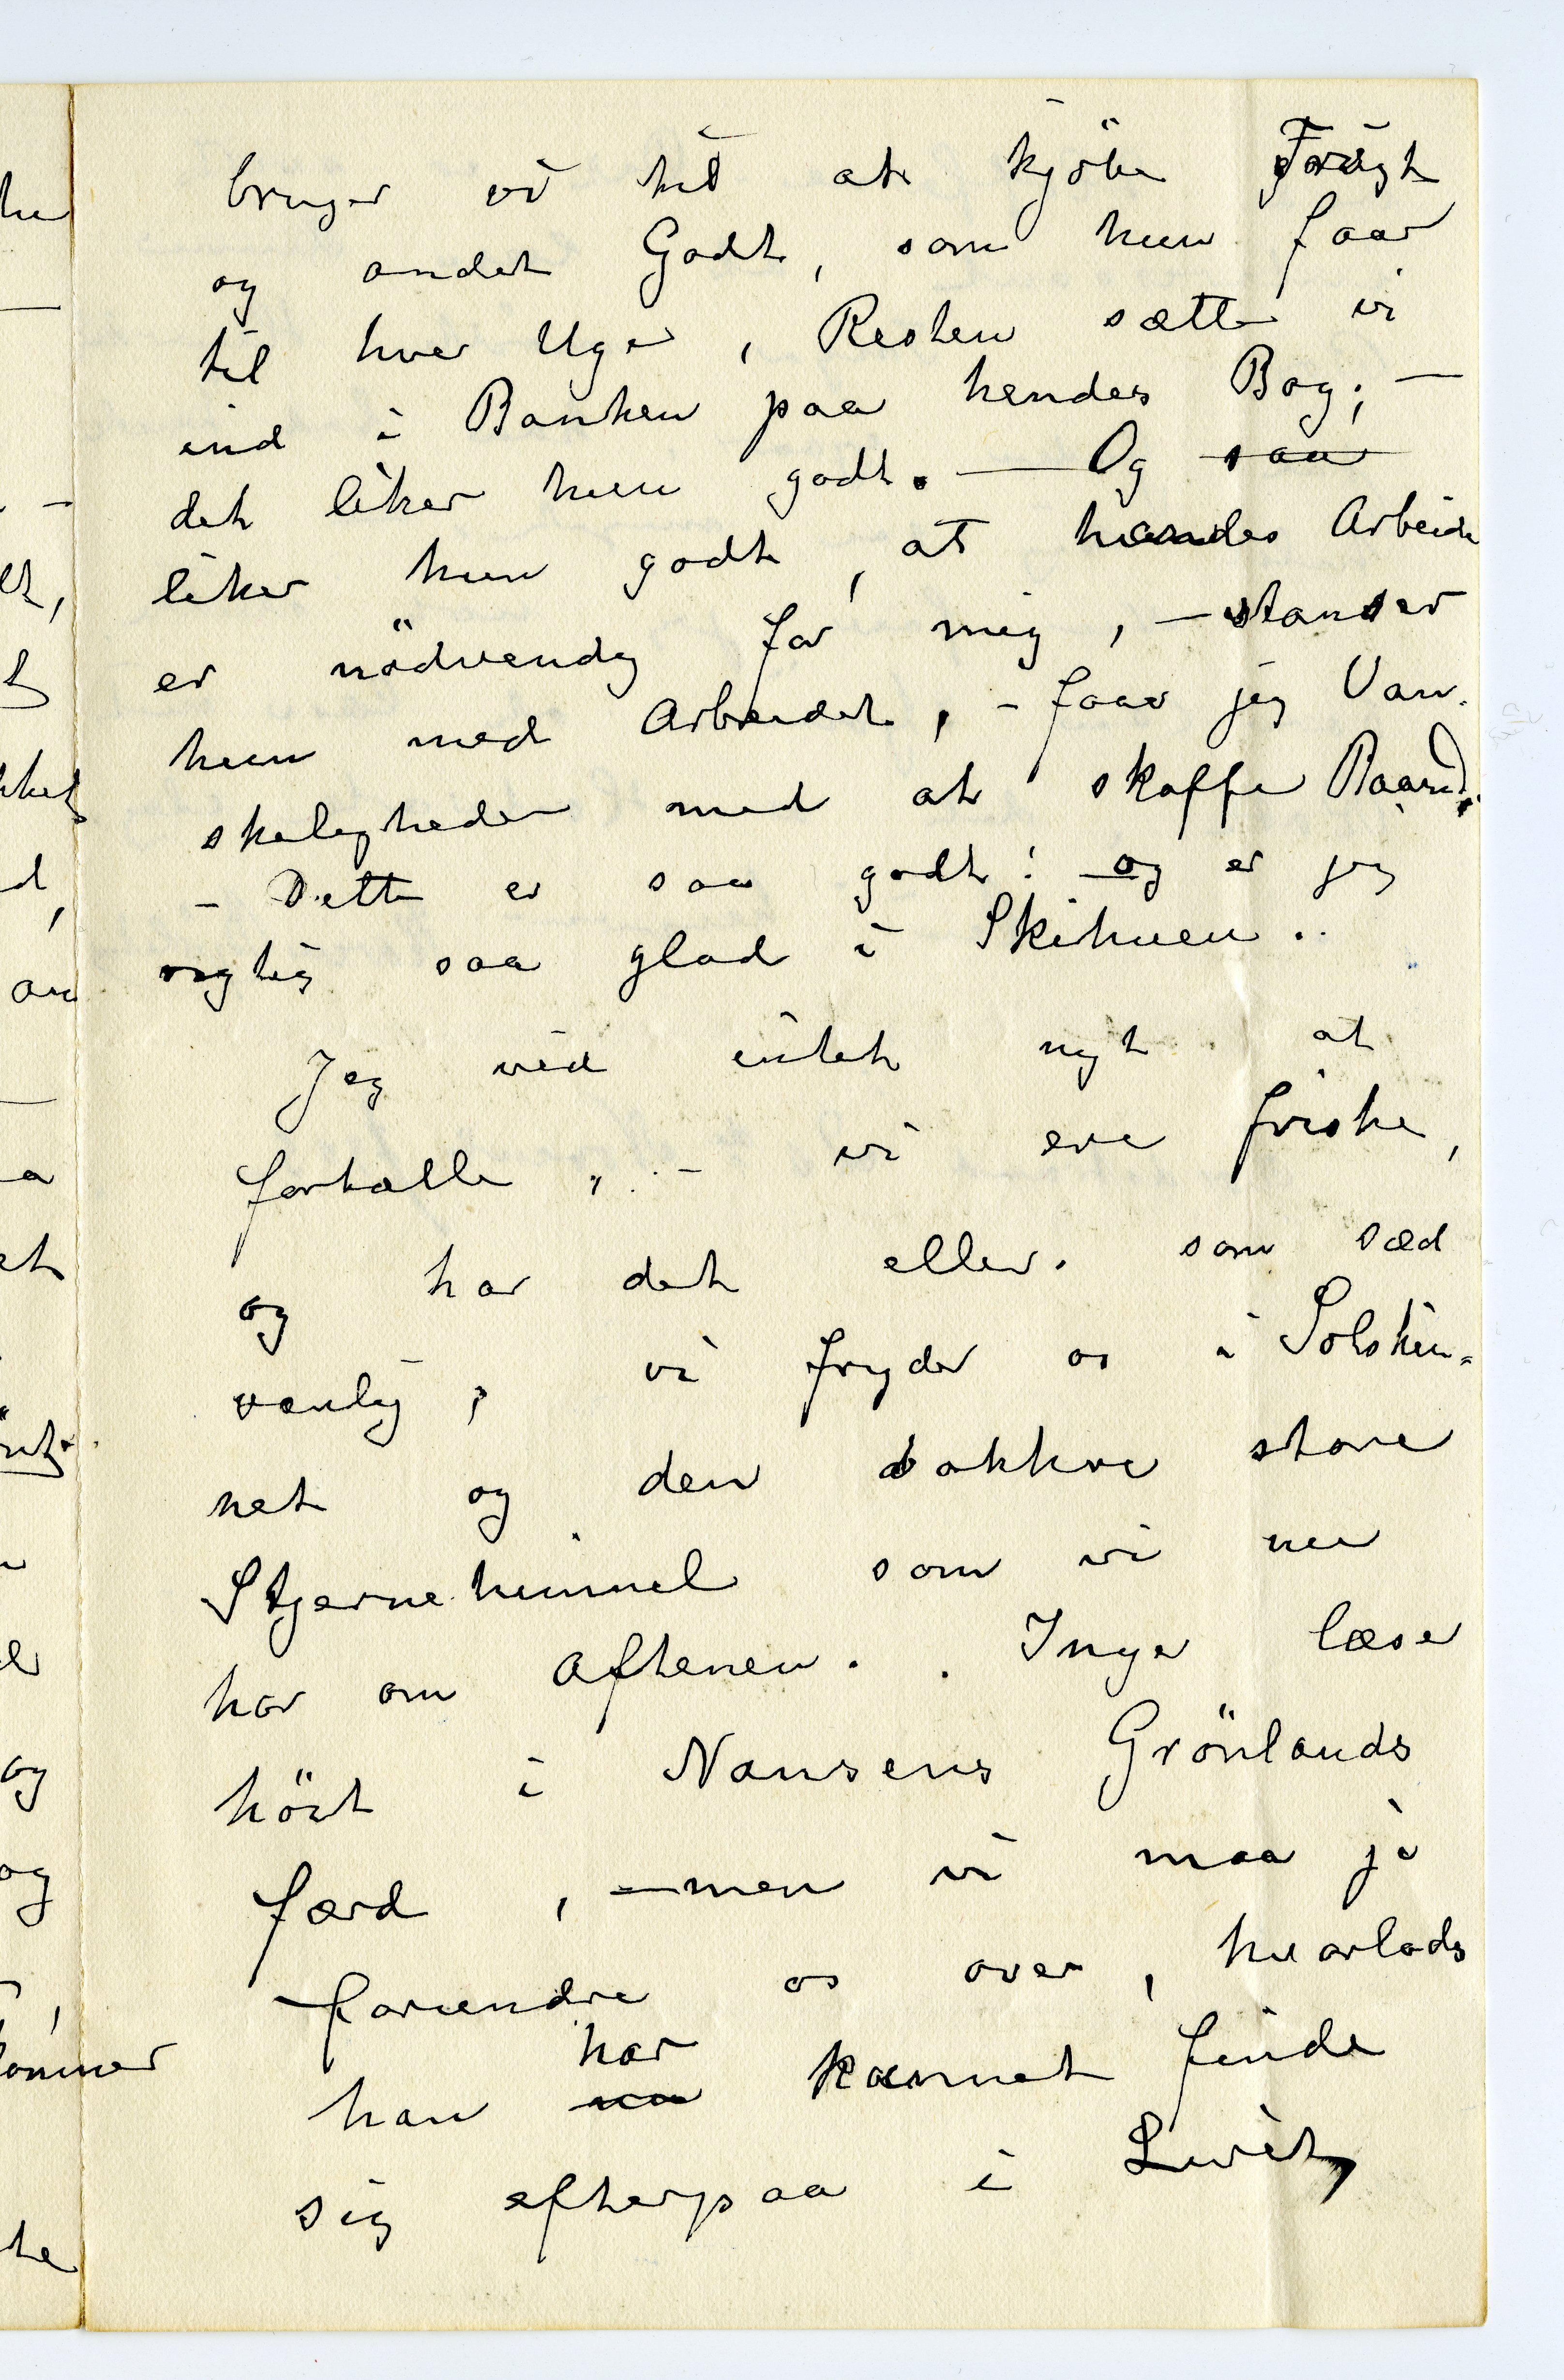 bruger vi til at kjöbe Frugt
og andet Godt, som hun faar
til hver Uge, Resten sætter vi
ind i Banken paa hendes Bog; —
det liker hun godt. — Og saa
liker hun godt, at hendes Arbeide
er nödvendig for mig, — standser
hun med Arbeidet, — faar jeg Van-
skeligheder med at skaffe Baand.
— Dette er saa godt! — og er jeg
rigtig saa glad i Skihuen..
Jeg ved intet nyt at
fortælle, — vi ere friske,
og har det ellers som sæd
vanlig, vi fryder os i Solskin-
net og den vakkre store
Stjernehimmel som vi nu
har om Aftenen. Inger læser
höit i Nansens Grönlands
færd, — men vi maa jo
forundre os over, hvorlads
han har kunnet finde
sig efterpaa i Livet,